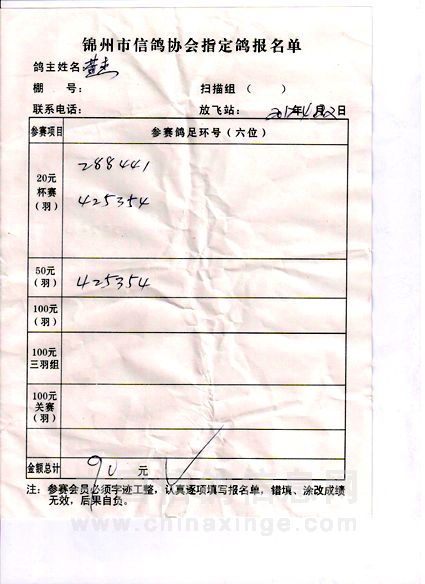 锦州市信鸽协会指定鸽报名单
鸽主姓名:
棚 号: 扫描组 ( )
联系电话: 放飞站: 2017年4月22日
参赛项目 参赛鸽足环号(六位)
20元 杯赛 (羽) 288441
425354
50元 (羽) 425354
100元 (羽)
100元 三羽组
100元 关赛 (羽)
金额总计 90 元
注: 参赛会员必须字迹工整, 认真逐项填写报名单, 错填、涂改成绩
无效, 后果自负。
www.chinaxinge.com